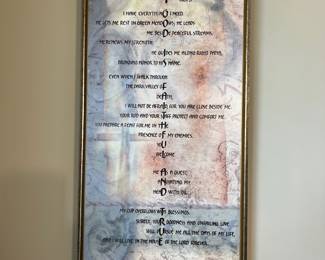 I HAVE EVERYTHING I NEED.
HE LETS ME REST IN GREEN MEADOWS; HE LEADS
ME BESIDE PEACEFUL STREAMS.
HE RENEWS MY STRENGTH.
HE GUIDES ME ALONG RIGHT PATHS,
BRINGING HONOR TO HIS NAME.
EVEN WHEN I WALK THROUGH
THE DARK VALLEY OF
DEATH,
I WILL NOT BE AFRAID, FOR YOU ARE CLOSE BESIDE ME.
YOUR ROD AND YOUR STAFF PROTECT AND COMFORT ME.
YOU PREPARE A FEAST FOR ME IN THE
PRESENCE OF MY ENEMIES.
YOU
WELCOME
ME AS A GUEST,
ANOINTING MY
HEAD WITH OIL.
MY CUP OVERFLOWS WITH BLESSINGS.
SURELY YOUR GOODNESS AND UNFAILING LOVE
WILL PURSUE ME ALL THE DAYS OF MY LIFE,
AND I WILL LIVE IN THE HOUSE OF THE LORD FOREVER.